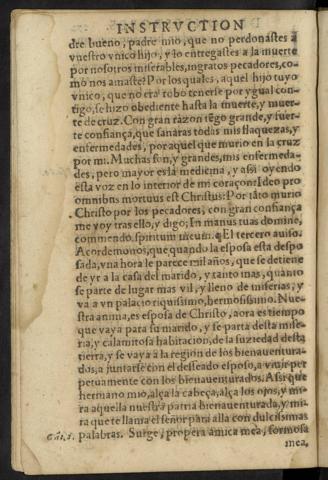 INSTRVCTION
dre bueno, padre mio, que no perdonastes a
vuestro vnico hijo, y lo entregastes a la muerte
por nosotros miserables, ingratos pecadores, co-
mo nos amaste? Por los quales, aquel hijo tuyo
vnico, que no era robo tenerse por ygual con-
tigo, se hizo obediente hasta la muerte, y muer-
te de cruz. Con gran razon tẽgo grande, y fuer-
te confiança, que sanaras todas mis flaquezas, y
enfermedades, por aquel que murio en la cruz
por mi. Muchas son, y grandes, mis enfermeda-
des, pero mayor es la medicina, y assi oyendo
esta voz en lo interior de mi coraçon: Ideo pro
omnibus mortuus est Christus: Por tãto murio
Christo por los pecadores, con gran confiança
me voy tras ello, y digo; In manus tuas domine,
commendo spiritum meum. ¶ El tercero auiso.
Acordemonos, que quando la esposa esta despo
sada, vna hora le parece mil años, que se detiene
de yr a la casa del marido, y tanto mas, quanto
se parte de lugar mas vil, y lleno de miserias, y
va a vn palacio riquissimo, hermosissimo. Nue-
stra anima, es esposa de Christo, aora es tiempo
que vaya para su marido, y se parta desta mise-
ria, y calamitosa habitacion, de la suziedad desta
tierra, y se vaya a la region de los bienauentura-
dos, a juntarse con el desseado esposo, a viuir per
petuamente con los bienauenturados. Assi que
hermano mio, alça la cabeça, alça los ojos, y mi-
ra aquella nuestra patria bienauenturada, y mi-
ra que te llama el señor para alla con dulcissimas
Cãt. 2. palabras. Surge, propera amica mea, formosa
mea,